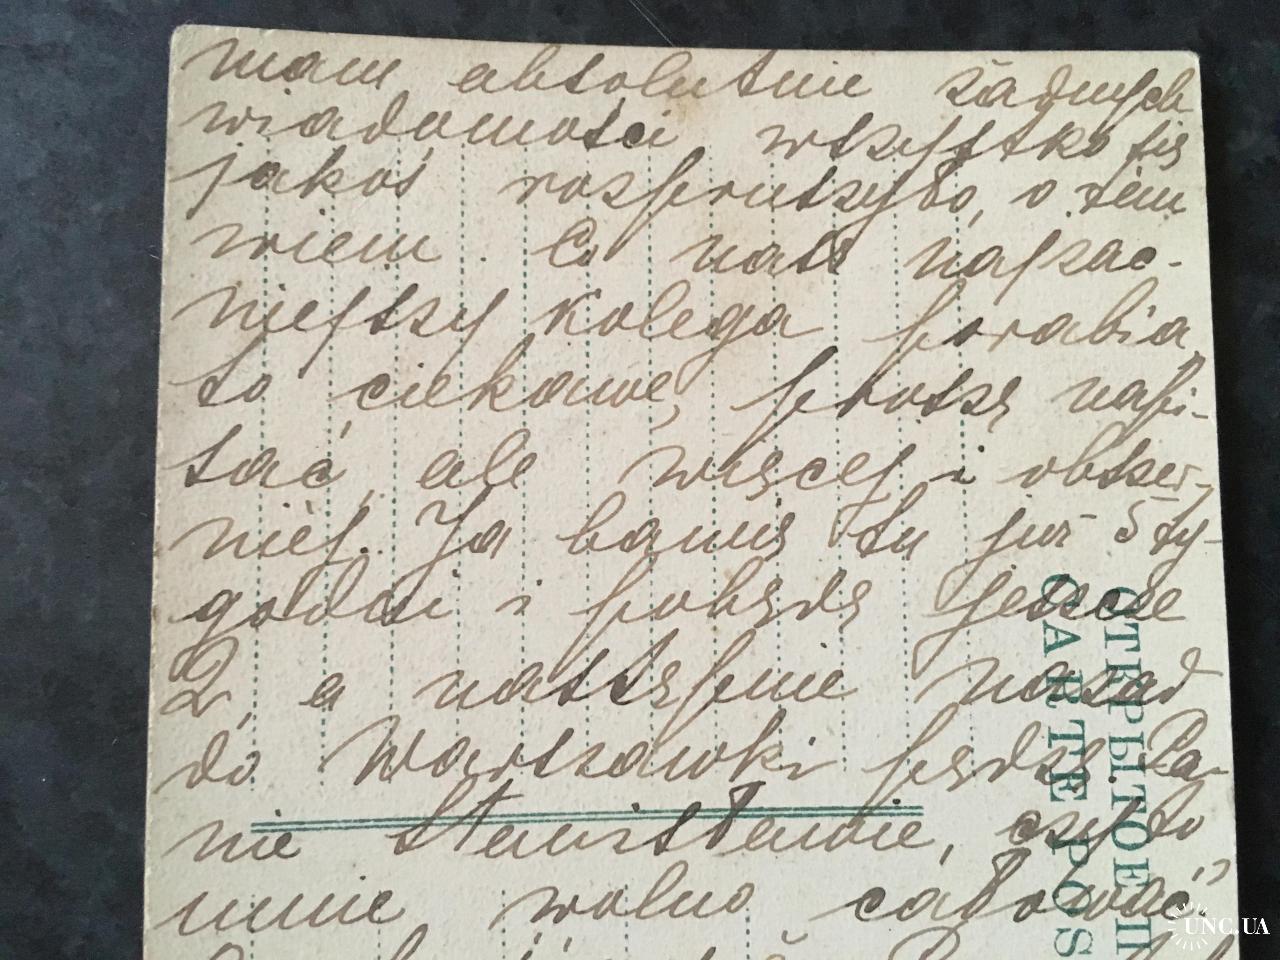 mam absolutnie żadnych
wiadomości wszystko się
jakoś rozpruszyło, o tem
wiem. Co nasz najzac-
niejszy kolega porabia
to ciekawe, proszę napi-
sać, ale więcej i obszer-
niej. Ja bawię tu już 5 ty-
godni i pobędę jeszcze
2, a następnie nazad
do Warszawki pędzę. Pa-
nie Stanisławie, czy to
mnie wolno całować?
ОТКРЫТОЕ П
CARTE POS
UNC.UA